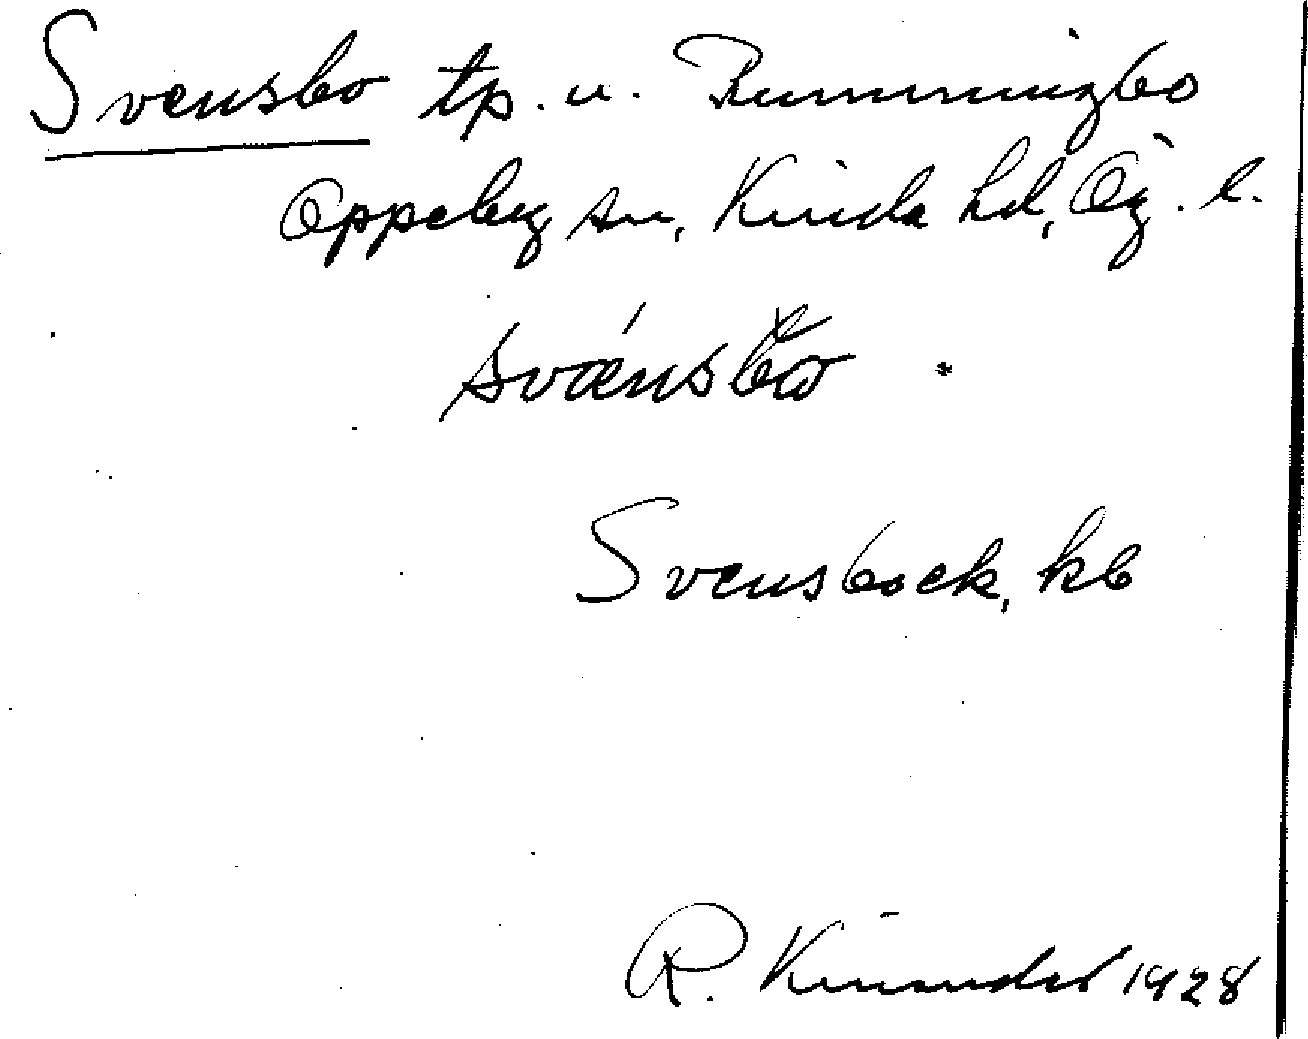 Svensbo tp. u. Rummingbo
Oppeby sn, Kinda hd, Ög. l.
Svensbock, kb
R. Kinander 1928